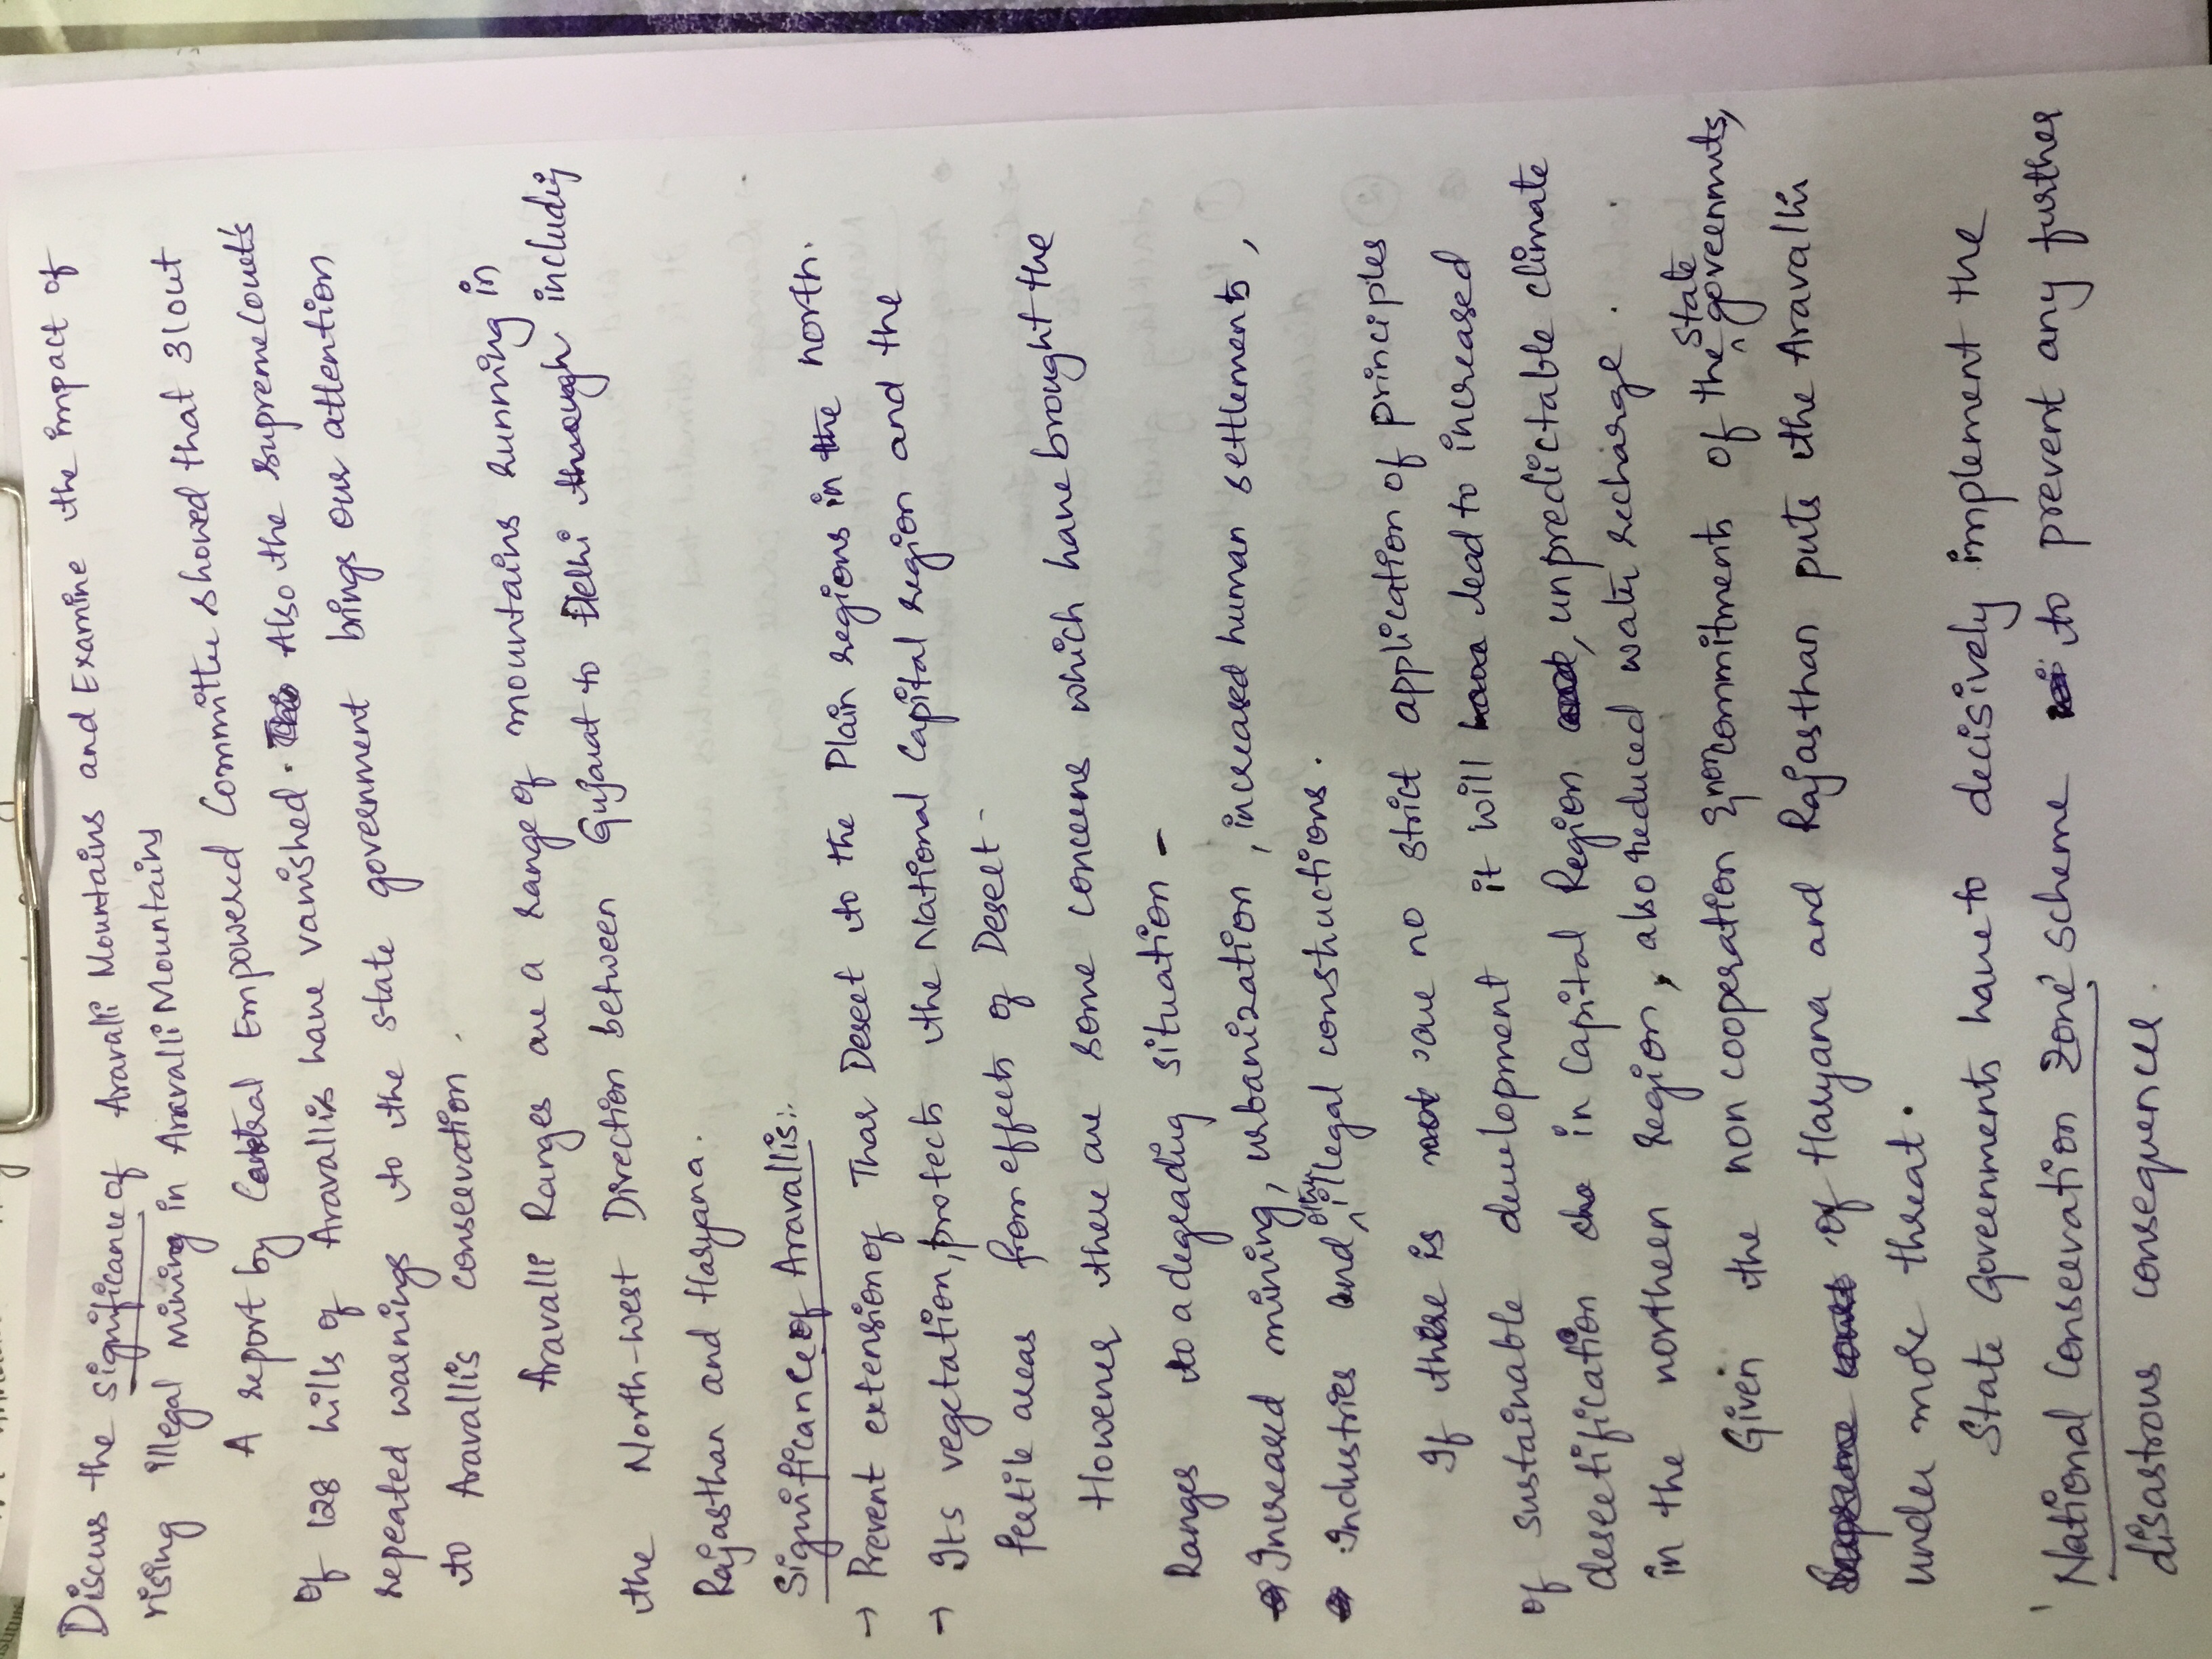 Discuss the significance of Aravalli Mountains and Examine the impact of
rising illegal mining in Aravalli Mountains
A report by Central Empowered Committee showed that 31 out
of 128 hills of Aravallis have vanished. Also the Supreme Court's
repeated warnings to the state government brings our attention
to Aravallis conservation.
Aravalli Ranges are a range of mountains running in
the North-west Direction between Gujarat to Delhi through including
Rajasthan and Haryana.
Significance of Aravallis:-
→ Prevent extension of Thar Desert to the Plain regions in the north.
→ Its vegetation, protects the National Capital region and the
fertile areas from effects of Desert.
However there are some concerns which have brought the
Ranges to a degrading situation -
Increased mining, urbanization, increased human settlements,
Industries and other illegal constructions.
If there is are no strict application of principles
of sustainable development it will lead to increased
desertification in Capital Region, unpredictable climate
in the northern region, also reduced water recharge.
Given the non cooperation & non commitments of the state governments,
of Haryana and Rajasthan puts the Aravallis
under more threat.
State Governments have to decisively implement the
'National Conservation Zone' scheme to prevent any further
disastrous consequences.